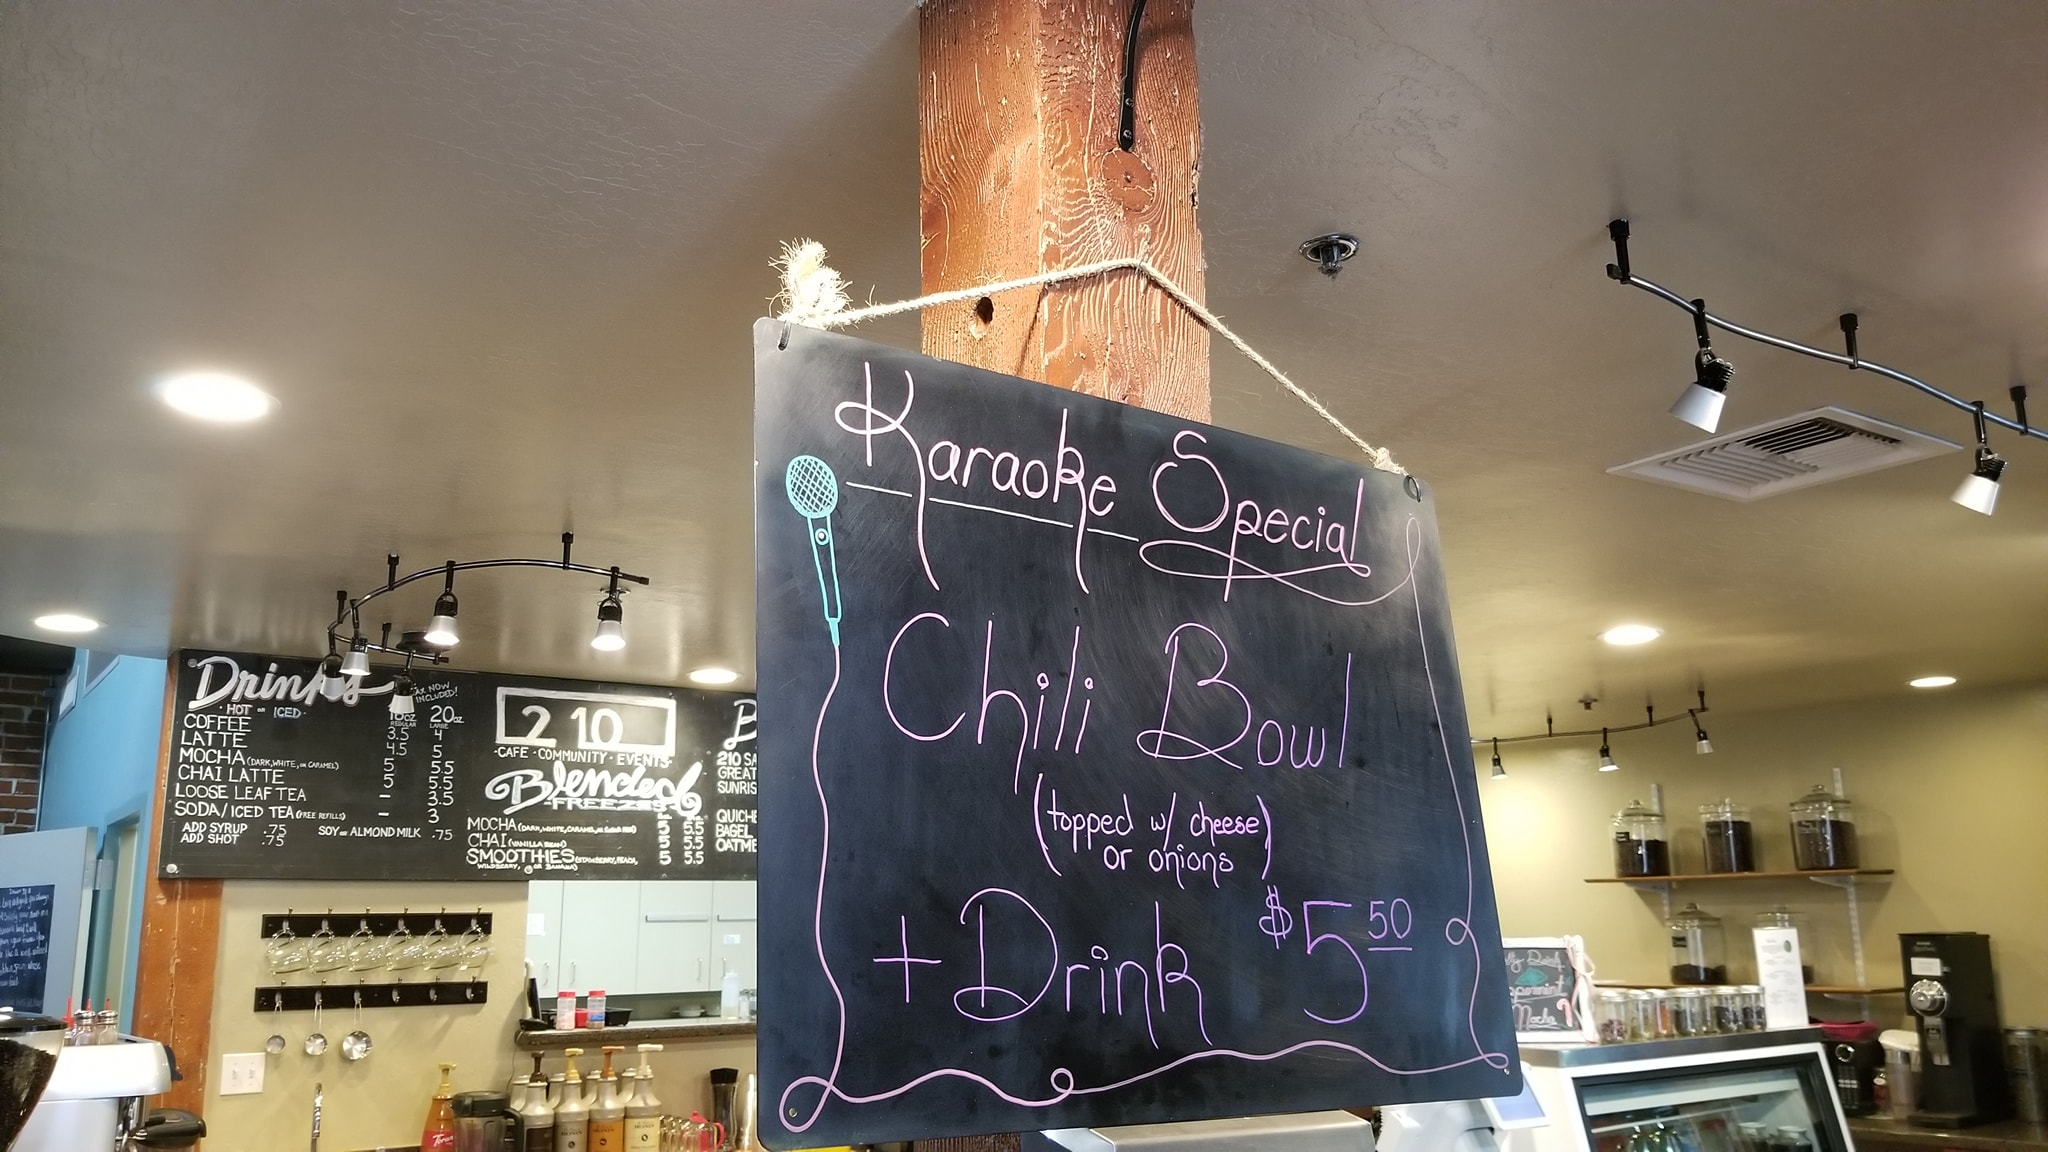 Karaoke Special
Chili Bowl
(topped w/ cheese)
or onions
+ Drink $5 50
Drinks
TAX NOW
INCLUDED!
HOT OR ICED
16OZ 20OZ
REGULAR LARGE
COFFEE 3.5 4
LATTE 4.5 5
MOCHA (DARK, WHITE, OR CARAMEL) 5 5.5
CHAI LATTE 5 5.5
LOOSE LEAF TEA – 3.5
SODA/ICED TEA (FREE REFILLS) – 3
ADD SYRUP .75 SOY OR ALMOND MILK .75
ADD SHOT .75
210
CAFE · COMMUNITY · EVENTS
Blended
FREEZES
MOCHA 5 5.5
CHAI (VANILLA BEAN) 5 5.5
SMOOTHIES (STRAWBERRY, PEACH, 5 5.5
WILDBERRY, OR BANANA)
B
210 SA
GREAT
SUNRIS
QUICHE
BAGEL
OATME
Drink
Mocha
Torani